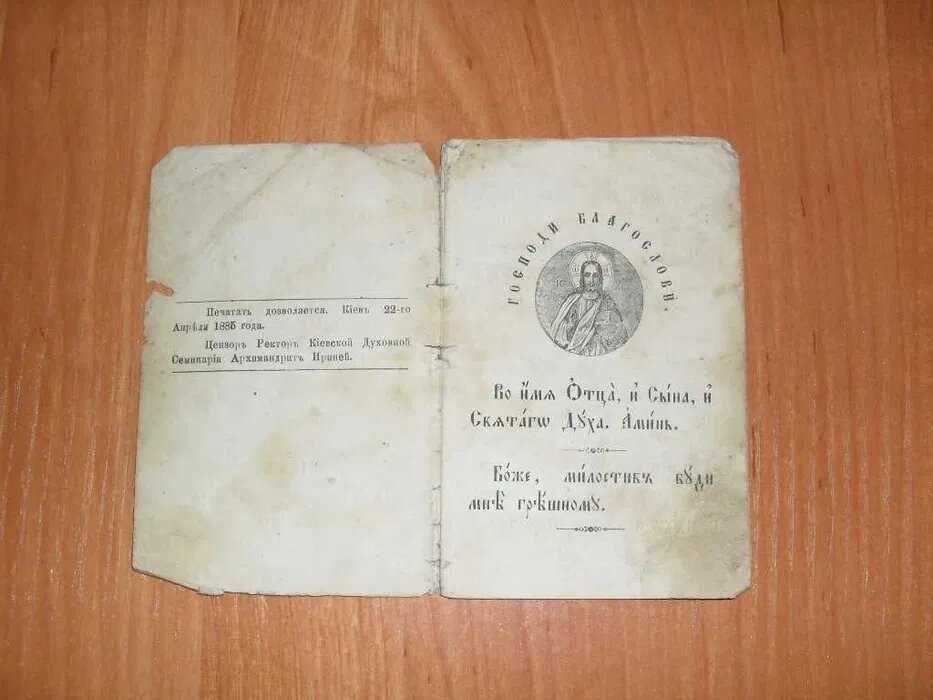 Печатать дозволяется. Кіевъ 22-го
Апрѣля 1885 года.
Цензоръ Ректоръ Кіевской Духовной
Семинаріи Архимандритъ Ириней.
ГОСПОДИ БЛАГОСЛОВИ.
Во и҆́мѧ Ѻ҆тца̀, и҆ Сы́на, и҆
Свѧта́гѡ Дꙋ́ха. А҆ми́нь.
Бо́же, ми́лостивъ бꙋ́ди
мнѣ̀ грѣ́шномꙋ.